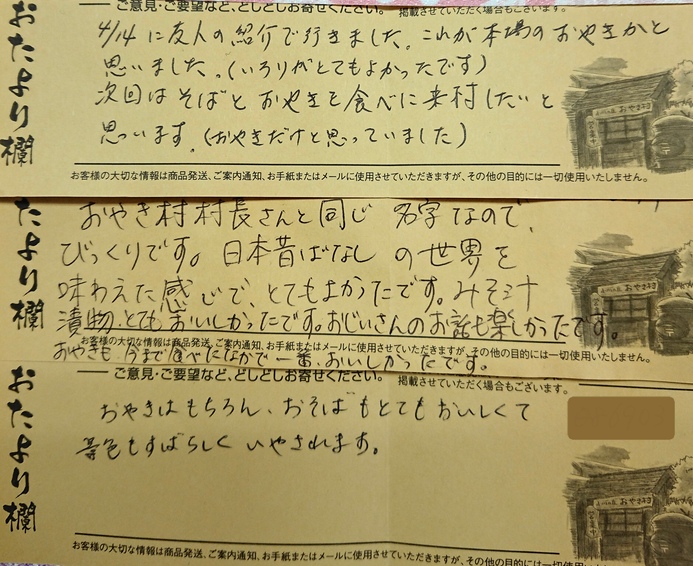 おたより欄
ご意見・ご要望など、どしどしお寄せください。 掲載させていただく場合もございます。
4/14に友人の紹介で行きました。これが本場のおやきかと
思いました。(いろりがとてもよかったです)
次回はそばとおやきを食べに来村したいと
思います。(おやきだけと思っていました)
お客様の大切な情報は商品発送、ご案内通知、お手紙またはメールに使用させていただきますが、その他の目的には一切使用いたしません。
おやき村
たより欄
おやき村村長さんと同じ名字なので、
びっくりです。日本昔ばなしの世界を
味わえた感じで、とてもよかったです。みそ汁
漬物とてもおいしかったです。おじいさんのお話も楽しかったです。
お客様の大切な情報は商品発送、ご案内通知、お手紙またはメールに使用させていただきますが、その他の目的には一切使用いたしません。
おやきも今まで食べたなかで一番おいしかったです。
おやき村
おたより欄
ご意見・ご要望など、どしどしお寄せください。 掲載させていただく場合もございます。
おやきはもちろん、おそばもとてもおいしくて
景色もすばらしくいやされます。
お客様の大切な情報は商品発送、ご案内通知、お手紙またはメールに使用させていただきますが、その他の目的には一切使用いたしません。
おやき村